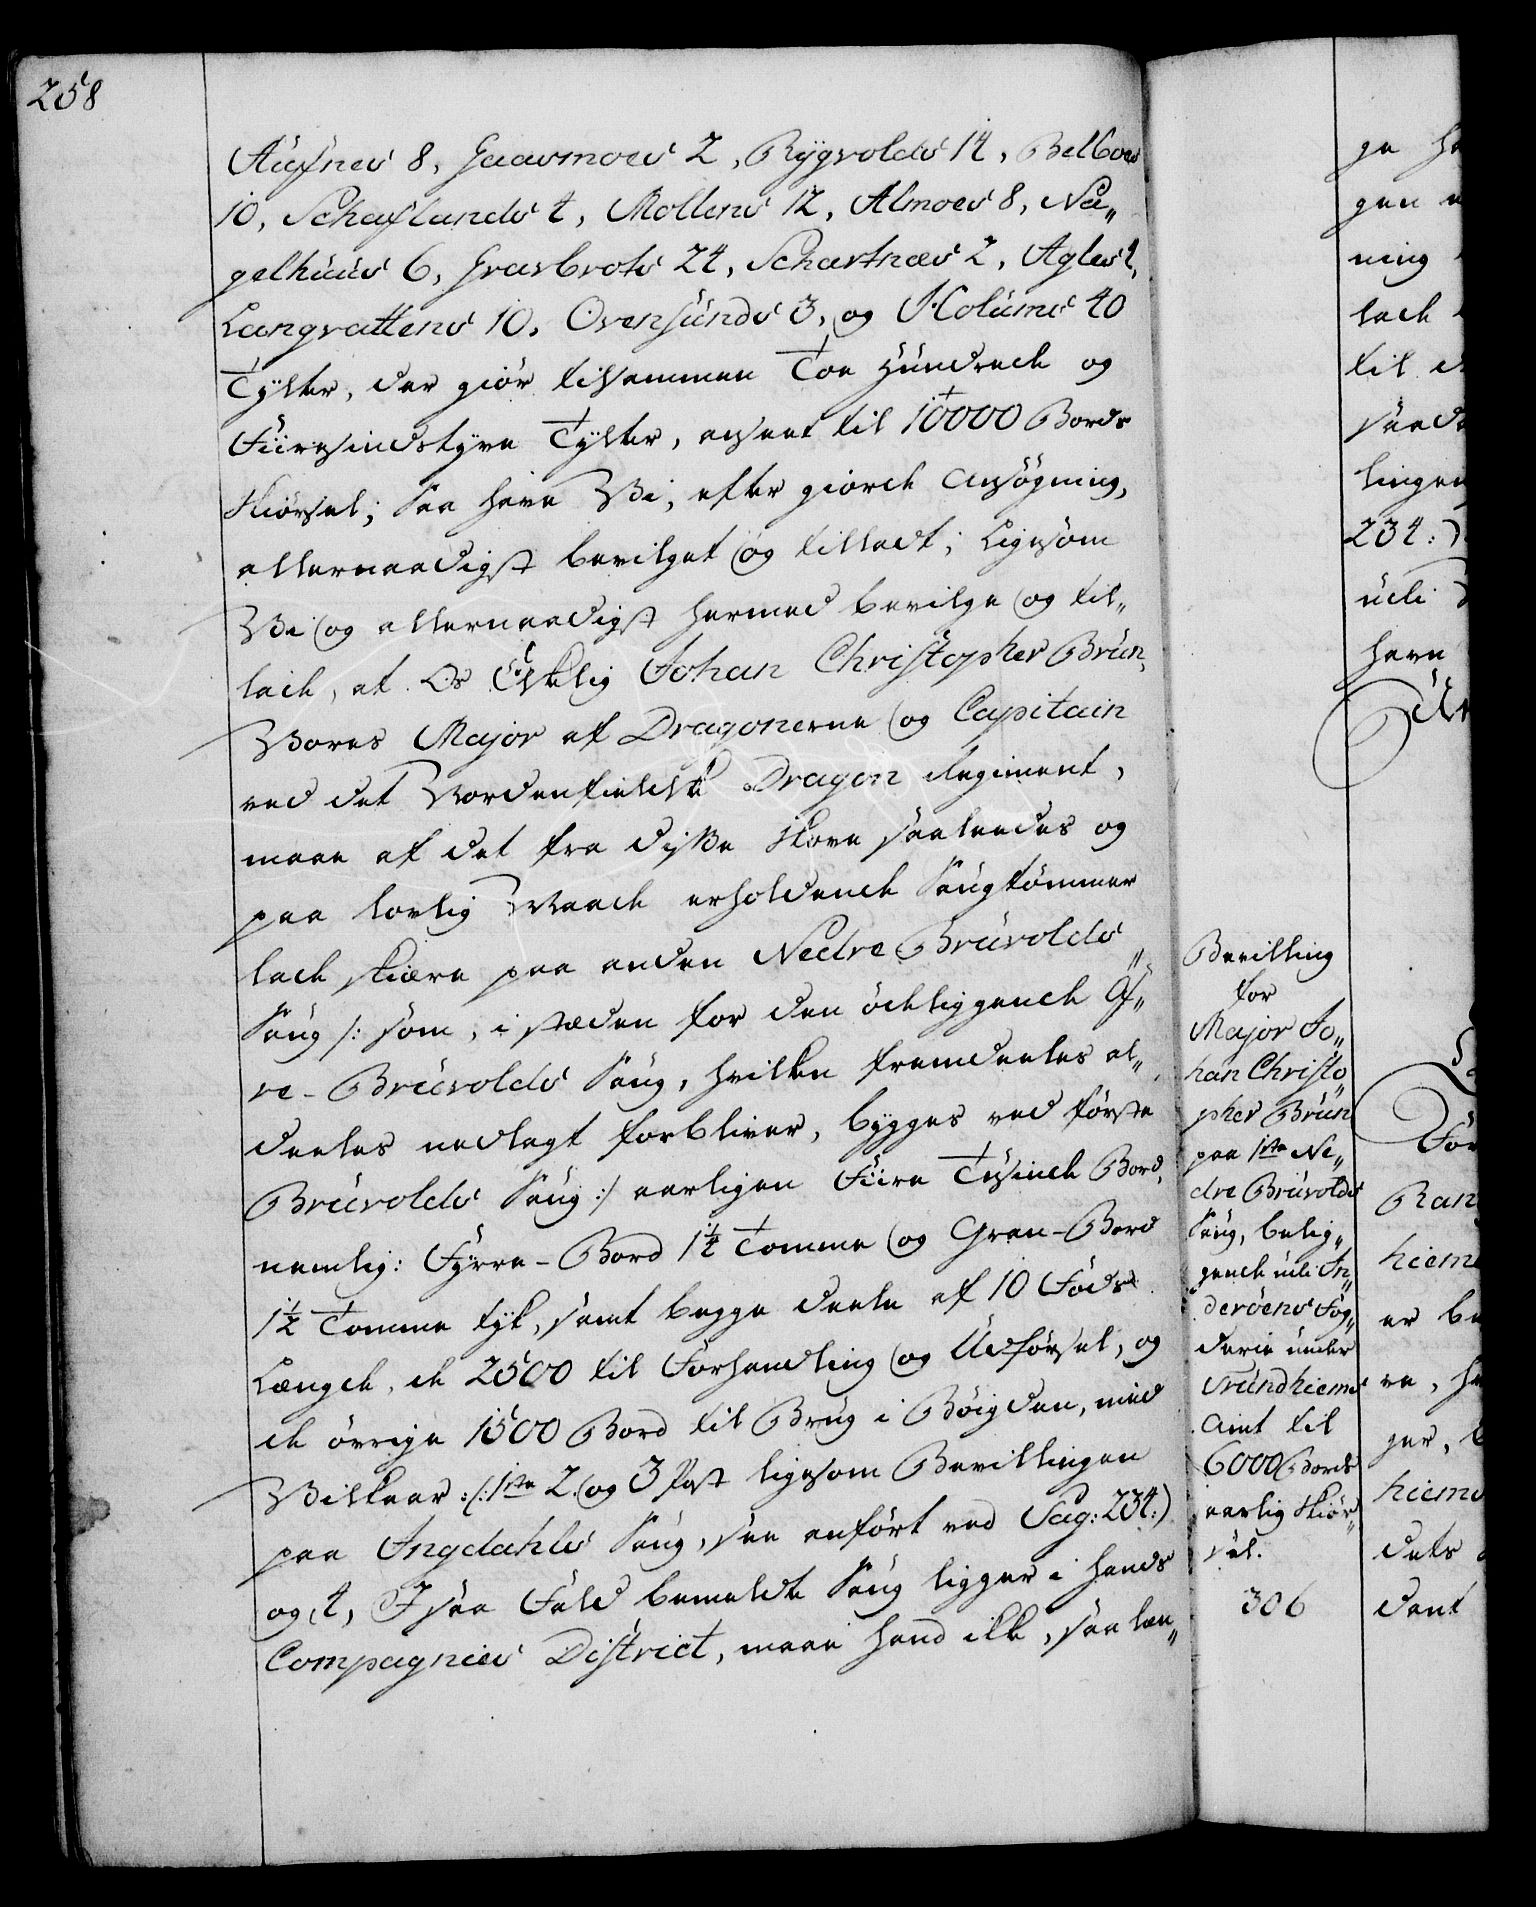 258
Aüfnes 8, Gaasmoes 2, Rÿgvolds 14, Belboes
10, Schaflands 4, Mollens 12, Almoes 8, Na„
gelhüüs 6, Grasbrots 24, Schartnæs 2, Agles 4,
Langvattens 10, Ovensünds 3, og Holüms 40
Tÿlter, der giör tilsammen Toe Hündrede og
Fiiresindstyve Tÿlter, anseet til 10000 Bords
Skiørsel; Saa have Vi, efter giorde Ansögning,
allernaadigst bevilget og tilladt; Ligesom
Vi og allernaadigst hermed bevilge og til„
lade, at Os Elskelig Johan Christopher Brün,
Vores Major af Dragonerne og Capitain
ved det Nordenfieldske Dragon Regiment,
maae af det fra diße Skove saaledes og
paa lovlig Maade erholdende Saugtömmer
lade skiære paa anden Nedre Brüvolds
Saug /: som, i stæden for den ödeliggende Öf„
re-Brüvolds Saug, hvilken fremdeeles al„
deeles nedlagt forbliver, bygges ved første
Brüvolds Saug :/ aarligen Fiire Tusinde Bord,
nemlig: Fyrre-Bord 1 1/4 Tomme og Gran-Bord
1 1/2 Tomme tyk, samt begge deele af 10 Föds
Længde, de 2500 til Forhandling og Udførsel, og
de øvrige 1500 Bord til Brug i Böigden, med
Vilkaar: (: 1ste 2. og 3 Post ligesom Bevillingen
paa Ingdahls Saug, saa anført ved Pag: 234:)
og, 4, I saa Fald bemeldte Saug ligger i hands
Compagnies District, maae hand ikke, saa læn„
Bevilling
for
Major Jo„
han Christo„
pher Brün
paa 1ste Ne„
dre Brüvolds
Saug, belig„
gende udi In„
deröens Fog„
derie under
Trundhiems
Amt til
6000 Bords
aarlig Skiør„
sel.
306
ge
gen
ning
lade
til
saad
lingen
234:)
udi
have
For
Ran
hiem
er
re,
ger,
hiems
dets
dent